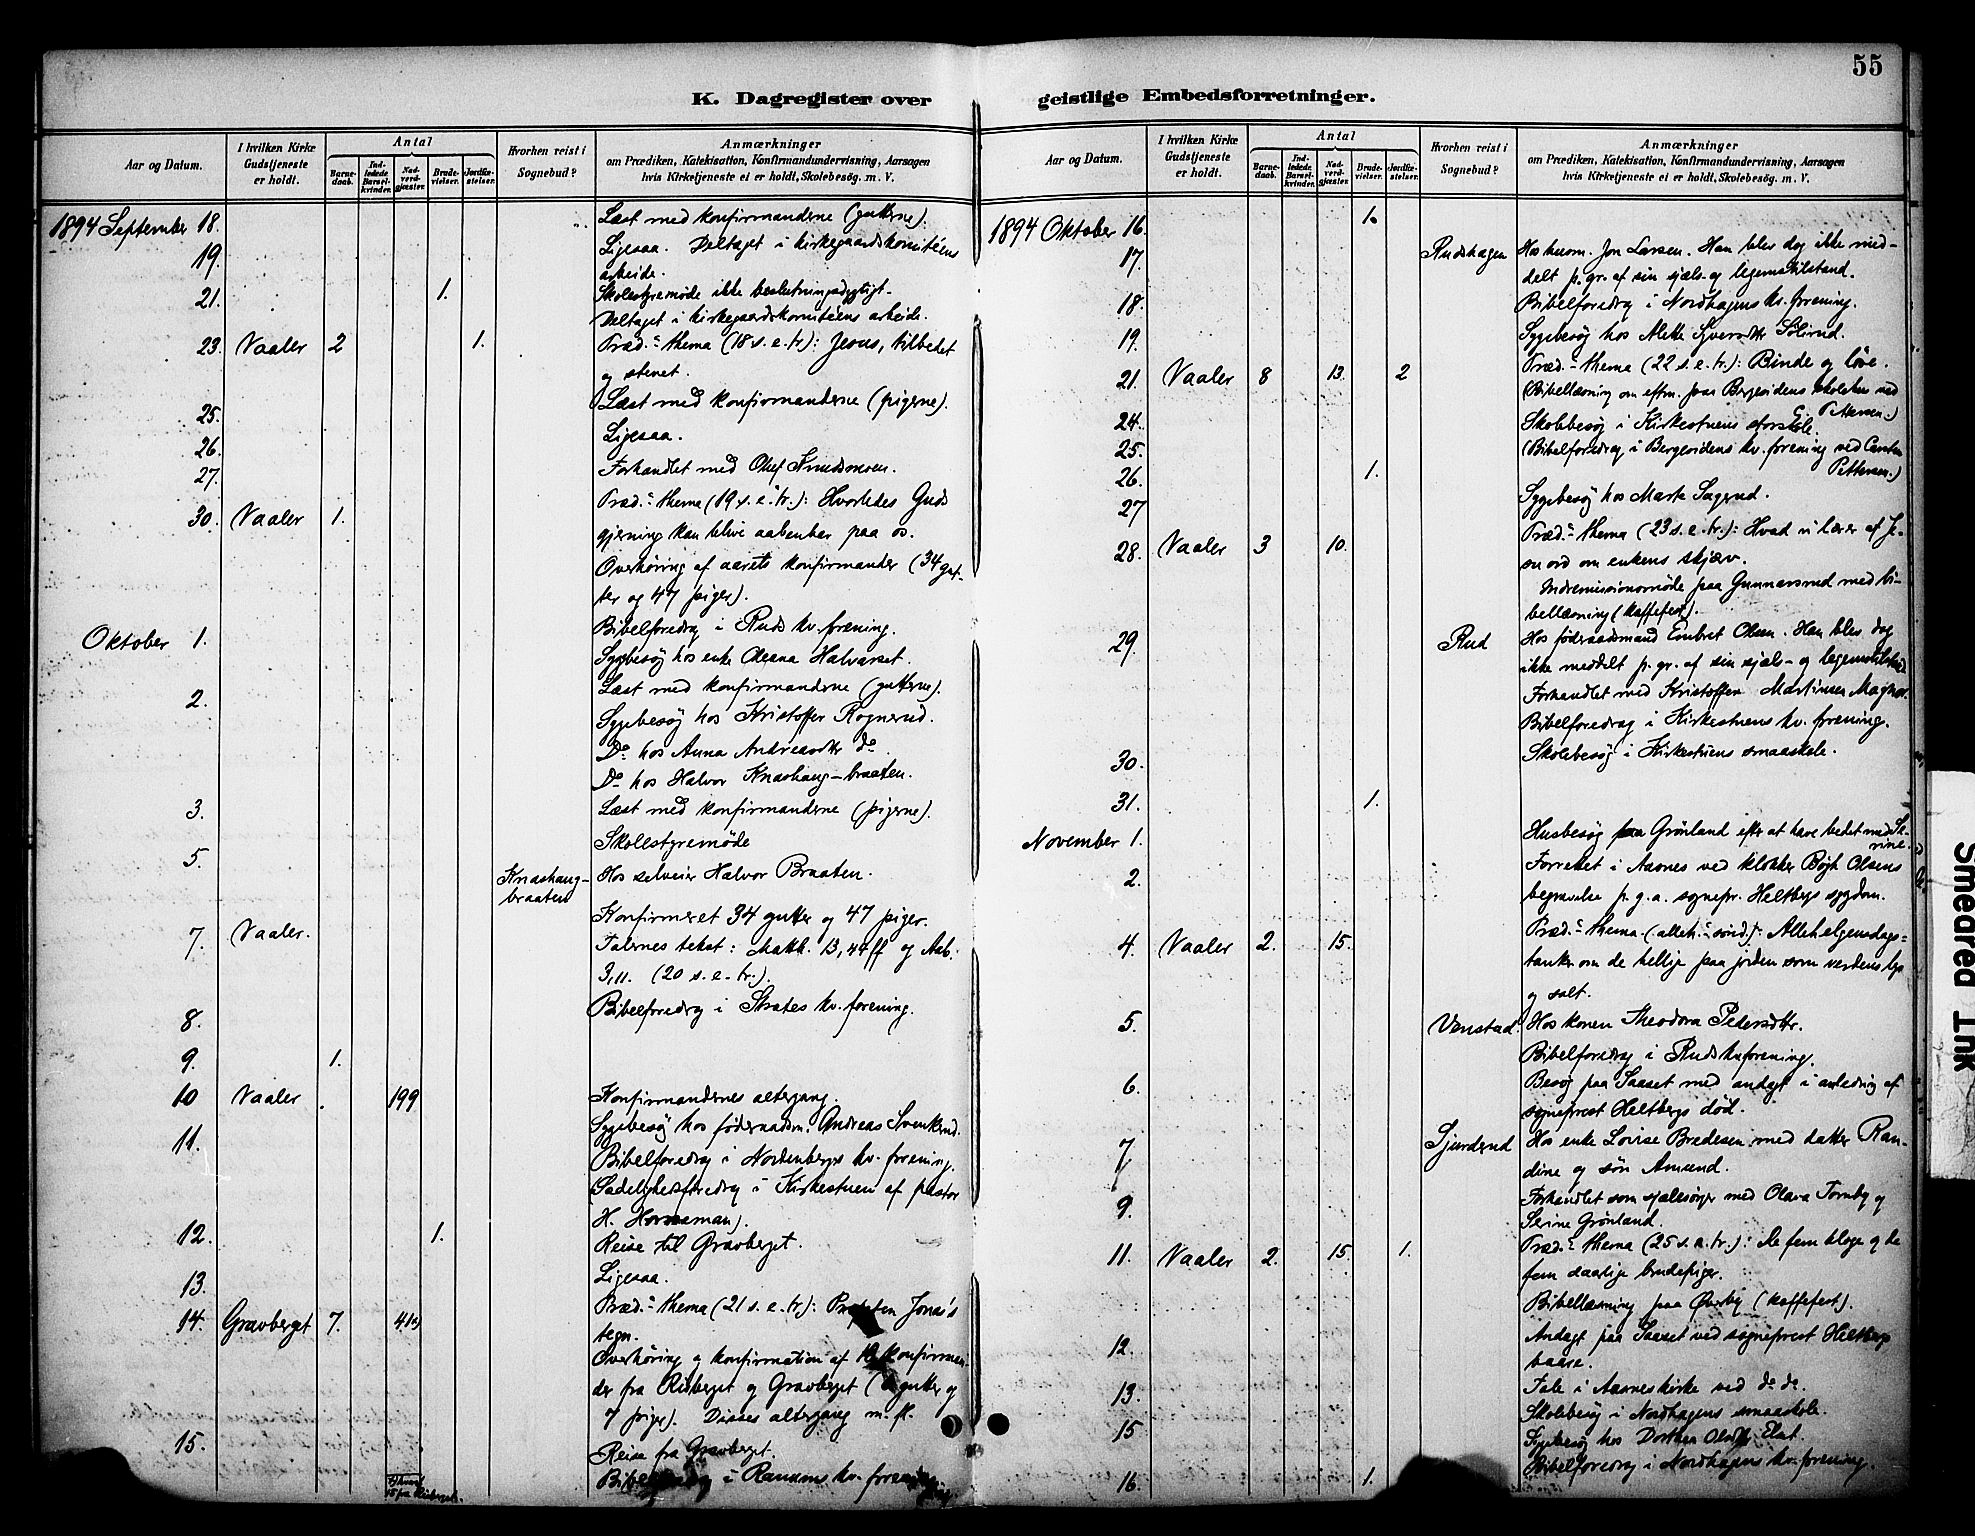 55
K. Dagregister over geistlige Embedsforretninger.
Aar og Datum.
I hvilken Kirke Gudstjeneste er holdt.
Antal
Barnedaab.
Indledede Barselkvinder.
Nadverdgjæster.
Brudevielser.
Jordfæstelser.
Hvorhen reist i Sognebud?
Anmærkninger
om Prædiken, Katekisation, Konfirmandundervisning, Aarsagen
hvis Kirketjeneste ei er holdt, Skolebesøg. m. V.
1894 September 18. Læst med konfirmanderne (gutterne).
19. Ligesaa. Deltaget i kirkegaardskomitéens
arbeide.
21. 1. Skolestyremøde ikke beslutningsdygtigt.
Deltaget i kirkegaardskomitéens arbeide.
23. Vaaler 2 1. Præd.- thema (18 s. e. tr.): Jesus, tilbedet
og stenet.
25. Læst med konfirmanderne (pigerne).
26. Ligesaa.
27. Forhandlet med Oluf
30. Vaaler 1. Præd.- thema (19 s. e. tr.): Hvorledes Guds
gjerning kan blive aabenbar paa os.
Overhøring af aarets konfirmander (34 gut-
ter og 47 piger).
Oktober 1. Bibelforedrag i Ruds kv. forening.
Sygebesøg hos enke Oleana Halvarset.
2. Læst med konfirmanderne (gutterne).
Sygebesøg hos Kristoffer Rognerud.
Do hos Anna Andreasdtr do
Do hos Halvor Knashaug-braaten.
3. Læst med konfirmanderne (pigerne).
Skolestyremøde
5. Knashaug-
braaten Hos selveier Halvor Braaten.
7. Vaaler. Konfirmeret 34 gutter og 47 piger.
Talernes tekst: Matth. 13, 44 ff og Aab.
3,11. (20 s. e. tr.).
8. Bibelforedrag i Strates kv. forening.
9. 1.
10 Vaaler 199 Konfirmandernes altergang.
11. Sygebesøg hos føderaadsm. Andreas Svenkerud.
Bibelforedrag i Nordenbergs kv. forening.
Sædelighedsforedrag i Kirkestuen af pastor
H. Horneman).
12. 1. Reise til Gravberget.
13. Ligesaa.
14. Gravberget 7. Præd.- thema (21 s. e. tr.): Jonas's
tegn.
Overhøring og konfirmation af konfirman-
der fra Risberget og Gravberget ( gutter og
7 piger). Disses altergang m. fl.
15. Reise fra Gravberget.
i Ranums kv. forening.
15 fra Risberget.
Aar og Datum.
I hvilken Kirke Gudstjeneste er holdt.
Antal
Barnedaab.
Indledede Barselkvinder.
Nadverdgjæster.
Brudevielser.
Jordfæstelser.
Hvorhen reist i Sognebud?
Anmærkninger
om Prædiken, Katekisation, Konfirmandundervisning, Aarsagen
hvis Kirketjeneste ei er holdt, Skolebesøg. m. V.
1894 Oktober 16. 1.
17. Rudshagen Hos husm. Jon Larsen. Han blev dog ikke med-
delt p. gr. af sin sjæls- og legemstilstand.
18. Bibelforedrag i Nordhagens kv. forening.
19. Sygebesøg hos Mette Syversdtr Solerud.
21. Vaaler 8 13. 2 Præd.- thema (22 s. e. tr.): Binde og løse.
(Bibellæsning om eftm. paa Bergesidens skolehus ved
G. Pettersen.)
24. Skolebesøg i Kirkestuens storskole.
25. (Bibelforedrag i Bergesidens kv. forening ved
Pettersen.)
26. 1.
27 Sygebesøg hos Marte Sagerud.
28. Vaaler 3 10. Præd.- thema (23 s. e. tr.): Hvad vi lærer af Je-
su ord om enkens skjærv.
Indremissionsmøde paa Gunnarsrud med bi-
bellæsning (kaffefest).
29. Rud Hos føderaadsmand Embret Olsen. Han blev dog
ikke meddelt p. gr. af sin sjæls- og legemstilstand
Forhandlet med Kristoffer Martinsen Magnor.
Bibelforedrag i Kirkestuens kv. forening.
30. Skolebesøg i Kirkestuens smaaskole.
31. 1.
November 1. Husbesøg paa Grønland efter at have bedet med Se-
rine.
2. Forrettet i Aasnes ved klokker Bøjh Olsens
begravelse p. g. a. sognepr. Heltbergs sygdom.
4. Vaaler 2. 15. Præd.- thema (alleh.- sønd.): Allehelgensdags-
tanker om de hellige paa jorden som verdens lys
og salt.
5. Vaustad. Hos konen Theodora Pedersdtr.
Bibelforedrag i Ruds kvforening.
6. Besøg paa Saaset med andagt i anledning af
sogneprest Heltbergs død.
7 Sjurderud Hos enke Lovise Bredesen med datter Ran-
dine og søn Amund.
9. Forhandlet som sjælesørger med Olava Tornby og
Serine Grønland.
11. Vaaler 2. 15. 1. Præd.- thema (25 s. e. tr.): De fem kloge og de
fem daarlige brudepiger.
Bibellæsning paa Øverby (kaffefest).
12. Andagt paa Saaset ved sogneprest Heltbergs
baare.
13. Tale i Aasnes kirke ved do do.
15 Skolebesøg i Nordhagens smaaskole.
Sygebesøg hos Dorthea Olsdtr
Bibelforedrag i Nordhagens kv. forening.
16. 1.
Smeared Ink